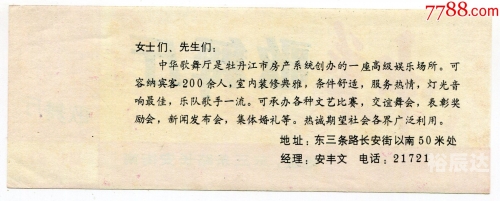 7788.com
女士们、先生们：
中华歌舞厅是牡丹江市房产系统创办的一座高级娱乐场所。可
容纳宾客200余人，室内装修典雅，条件舒适，服务热情，灯光音
响最佳，乐队歌手一流。可承办各种文艺比赛，交谊舞会，表彰奖
励会，新闻发布会，集体婚礼等。热诚期望社会各界广泛利用。
地址：东三条路长安街以南50米处
经理：安丰文 电话：21721
裕辰达